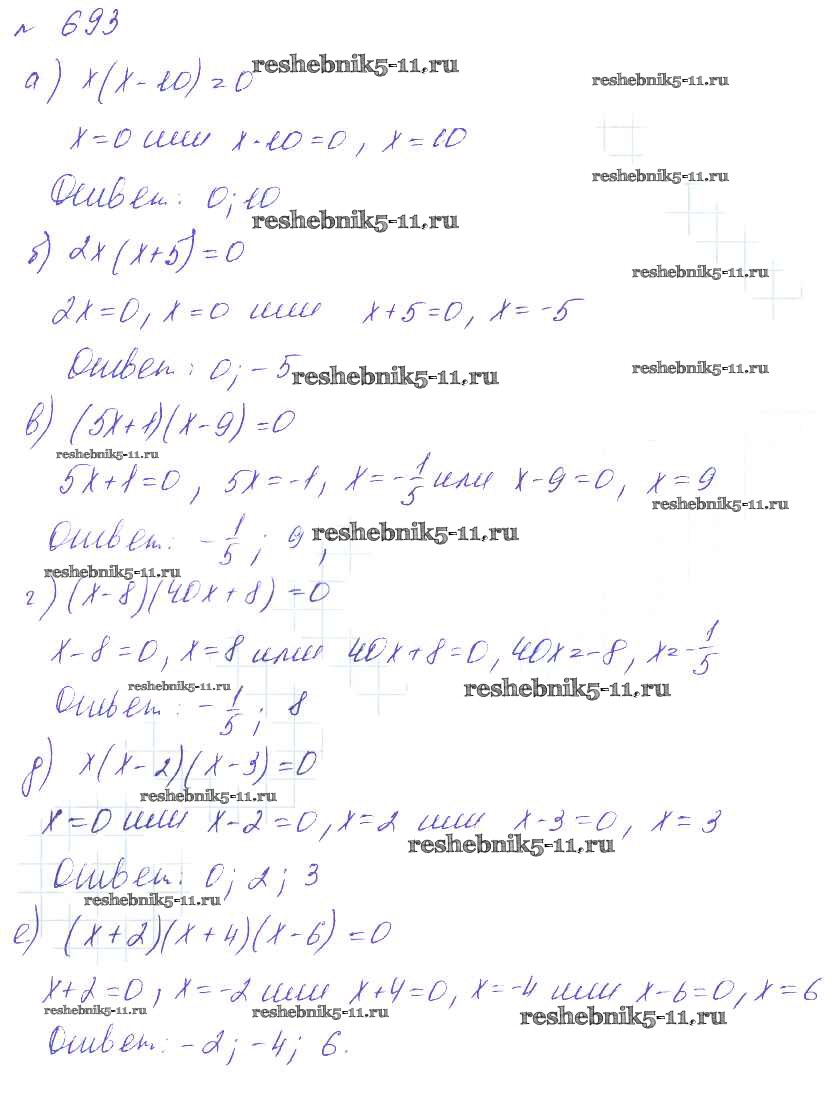 № 693
а) x(x-10)=0 reshebnik5-11.ru
reshebnik5-11.ru
x=0 или x-10=0, x=10
reshebnik5-11.ru
Ответ: 0; 10
reshebnik5-11.ru
б) 2x(x+5)=0
reshebnik5-11.ru
2x=0, x=0 или x+5=0, x=-5
Ответ: 0; -5 reshebnik5-11.ru
reshebnik5-11.ru
в) (5x+1)(x-9)=0
reshebnik5-11.ru
5x+1=0, 5x=-1, x=-1/5 или x-9=0, x=9
reshebnik5-11.ru
Ответ: -1/5; 9, reshebnik5-11.ru
reshebnik5-11.ru
г) (x-8)(40x+8)=0
x-8=0, x=8 или 40x+8=0, 40x=-8, x=-1/5
reshebnik5-11.ru reshebnik5-11.ru
Ответ: -1/5; 8
д) x(x-2)(x-3)=0
reshebnik5-11.ru
x=0 или x-2=0, x=2 или x-3=0, x=3
reshebnik5-11.ru
Ответ: 0; 2; 3
reshebnik5-11.ru
е) (x+2)(x+4)(x-6)=0
x+2=0, x=-2 или x+4=0, x=-4 или x-6=0, x=6
reshebnik5-11.ru reshebnik5-11.ru reshebnik5-11.ru
Ответ: -2; -4; 6.